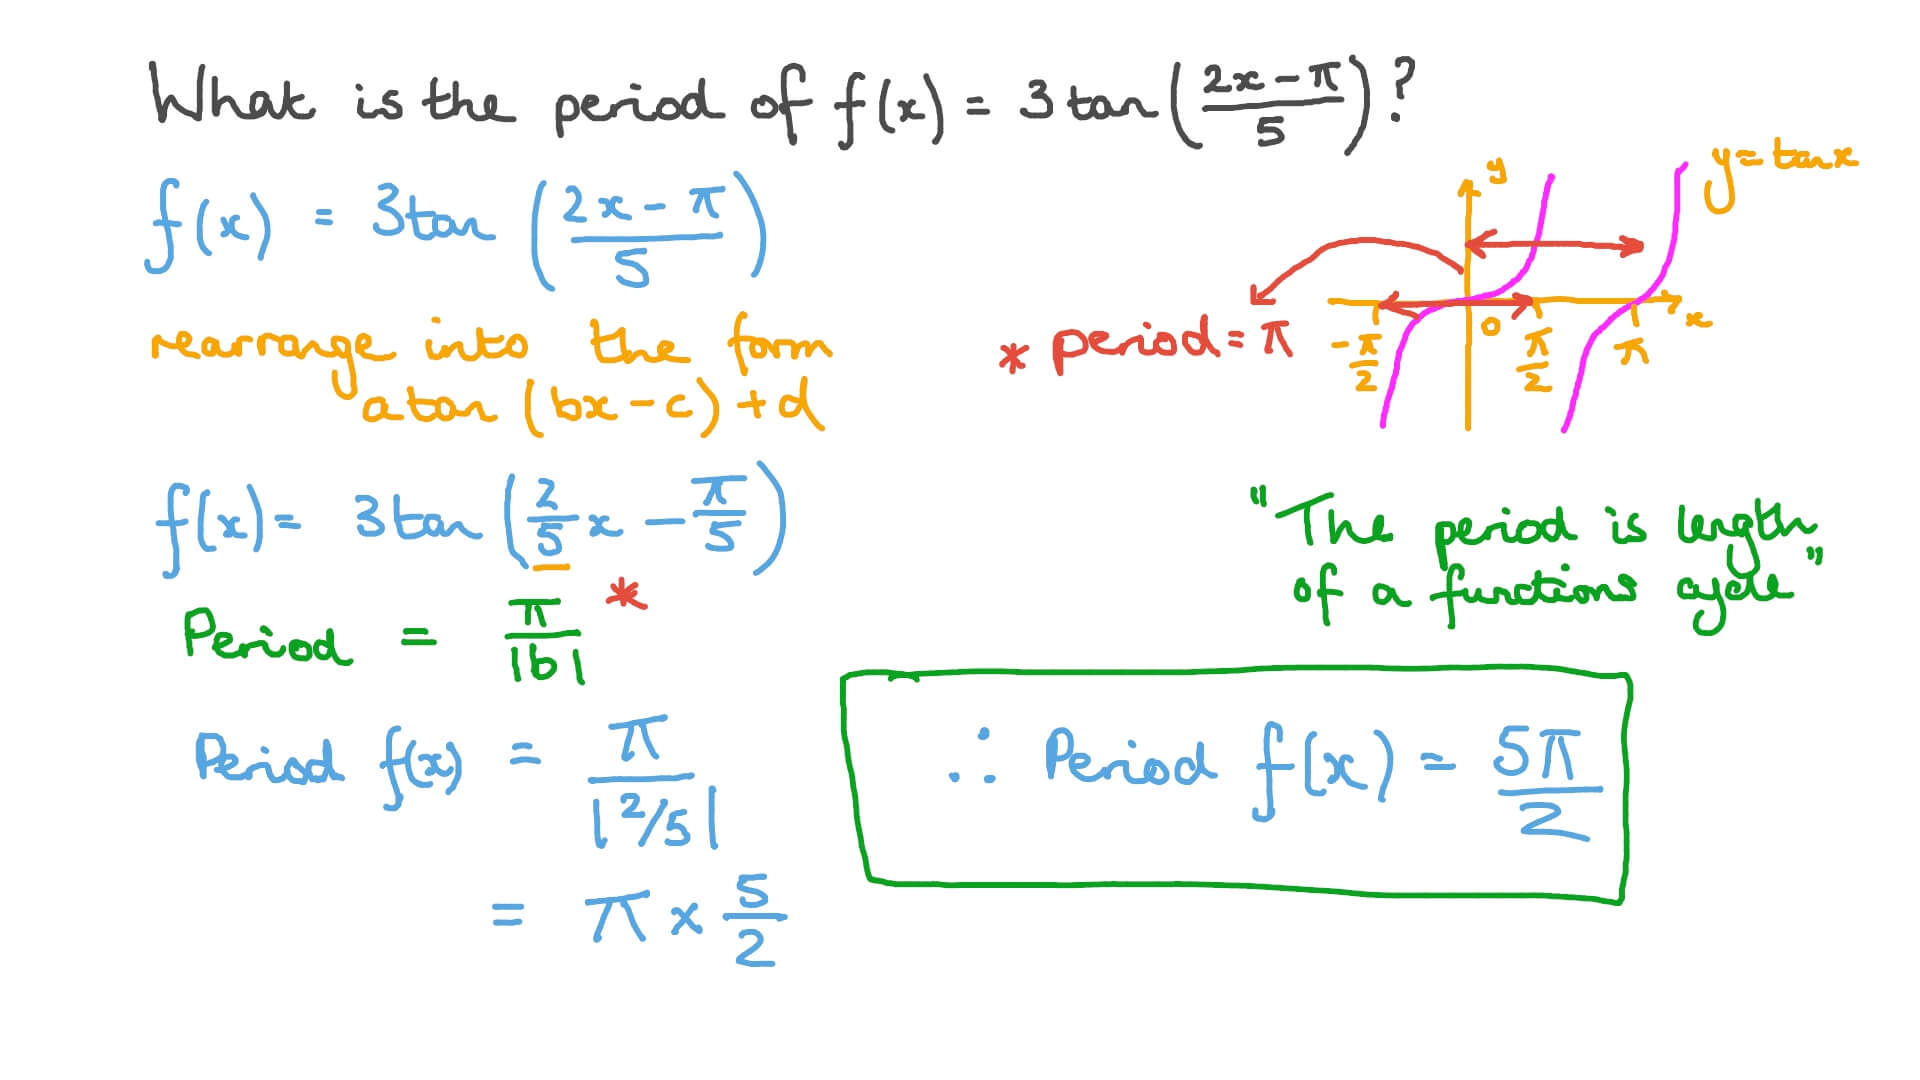 What is the period of f(x) = 3tan((2x-π)/5)?
f(x) = 3tan((2x-π)/5)
rearrange into the form
atan(bx-c)+d
f(x)= 3tan(2/5 x - π/5)
Period = π/|b| *
Period f(x) = π/|2/5|
= π × 5/2
y=tanx
y
x
0
-π/2
π/2
π
* period=π
"The period is length
of a functions cycle"
∴ Period f(x) = 5π/2